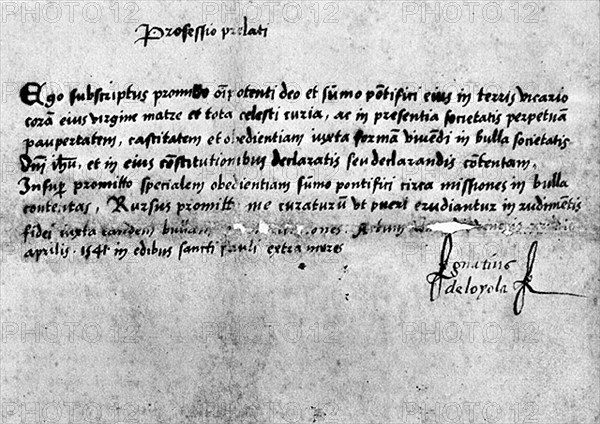 Professio prelati
Ego subscriptus promitto oīpotenti deo et sūmo pōtifici eius in terris vicario
corā eius virgine matre et tota celesti curia, ac in presentia societatis perpetuā
paupertatem, castitatem et obedientiam iuxta formā vivēdi in bulla societatis
Dn̄i ih̄u, et in eius cōstitutionibus declaratis seu declarandis cōtentam.
Insup promitto specialem obedientiam sūmo pontifici circa missiones in bulla
contentas, Rursus promitto me curaturū ut pueri erudiantur in rudimētis
fidei iuxta eandem bullam
aprilis 1541 in edibus sancti pauli extra muros
Ignatius
de loyola